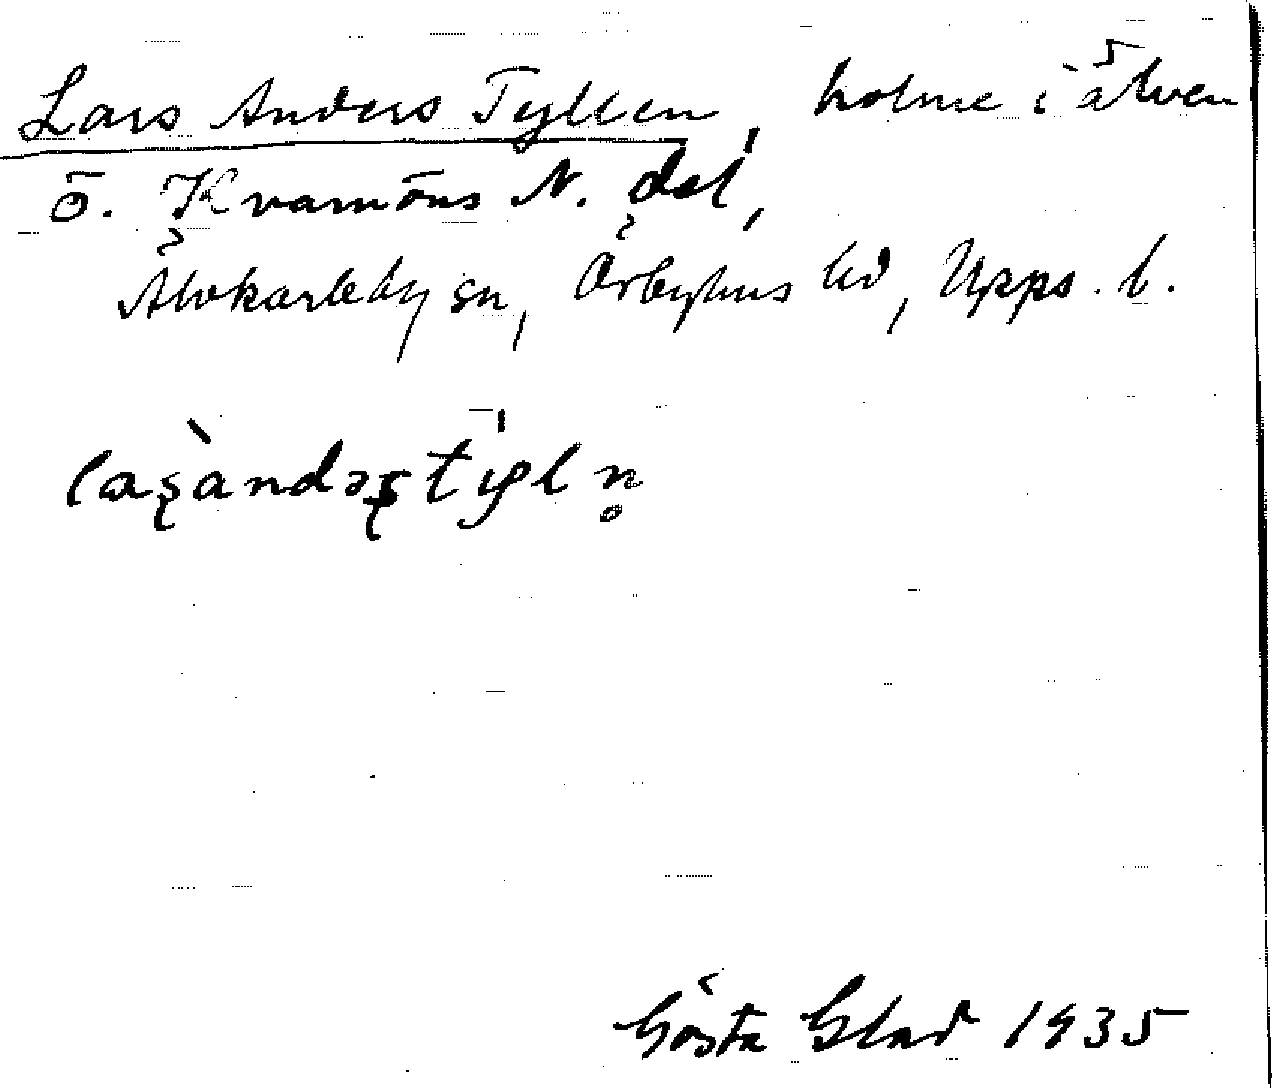 Lars Anders Tyllen, holme i älven
ö. Kvarnöns N. del,
Älvkarleby sn, Örbyhus hd, Upps. l.
Gösta Blad 1935